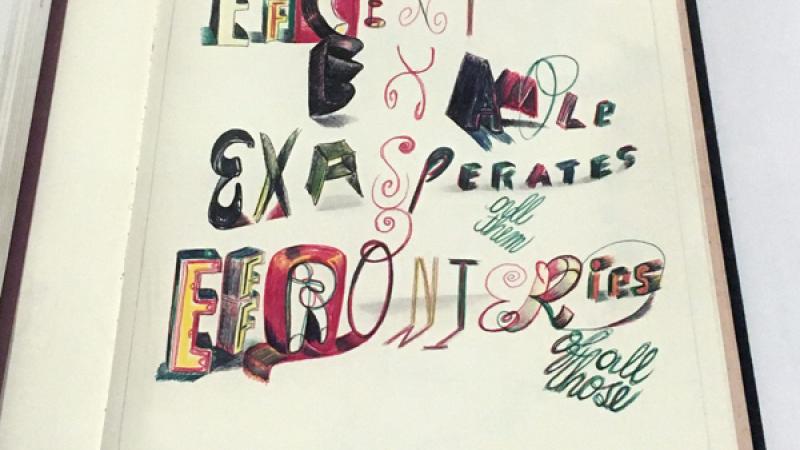 EXAMPLe
EXASPERATES
all
them
EFFRONTERies
of all
those